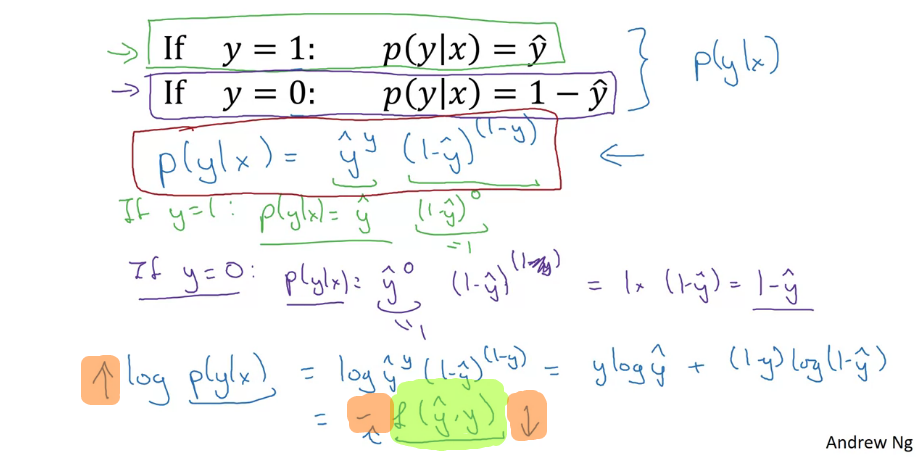 → If y = 1: p(y|x) = ŷ
→ If y = 0: p(y|x) = 1 − ŷ } p(y|x)
p(y|x) = ŷ^y (1-ŷ)^(1-y) ←
If y=1: p(y|x) = ŷ (1-ŷ)^0 =1
If y=0: p(y|x) = ŷ^0 (1-ŷ)^(1-y) = 1 × (1-ŷ) = 1-ŷ
=1
↑ log p(y|x) = log ŷ^y (1-ŷ)^(1-y) = y log ŷ + (1-y) log(1-ŷ)
= - ℒ(ŷ,y) ↓
Andrew Ng